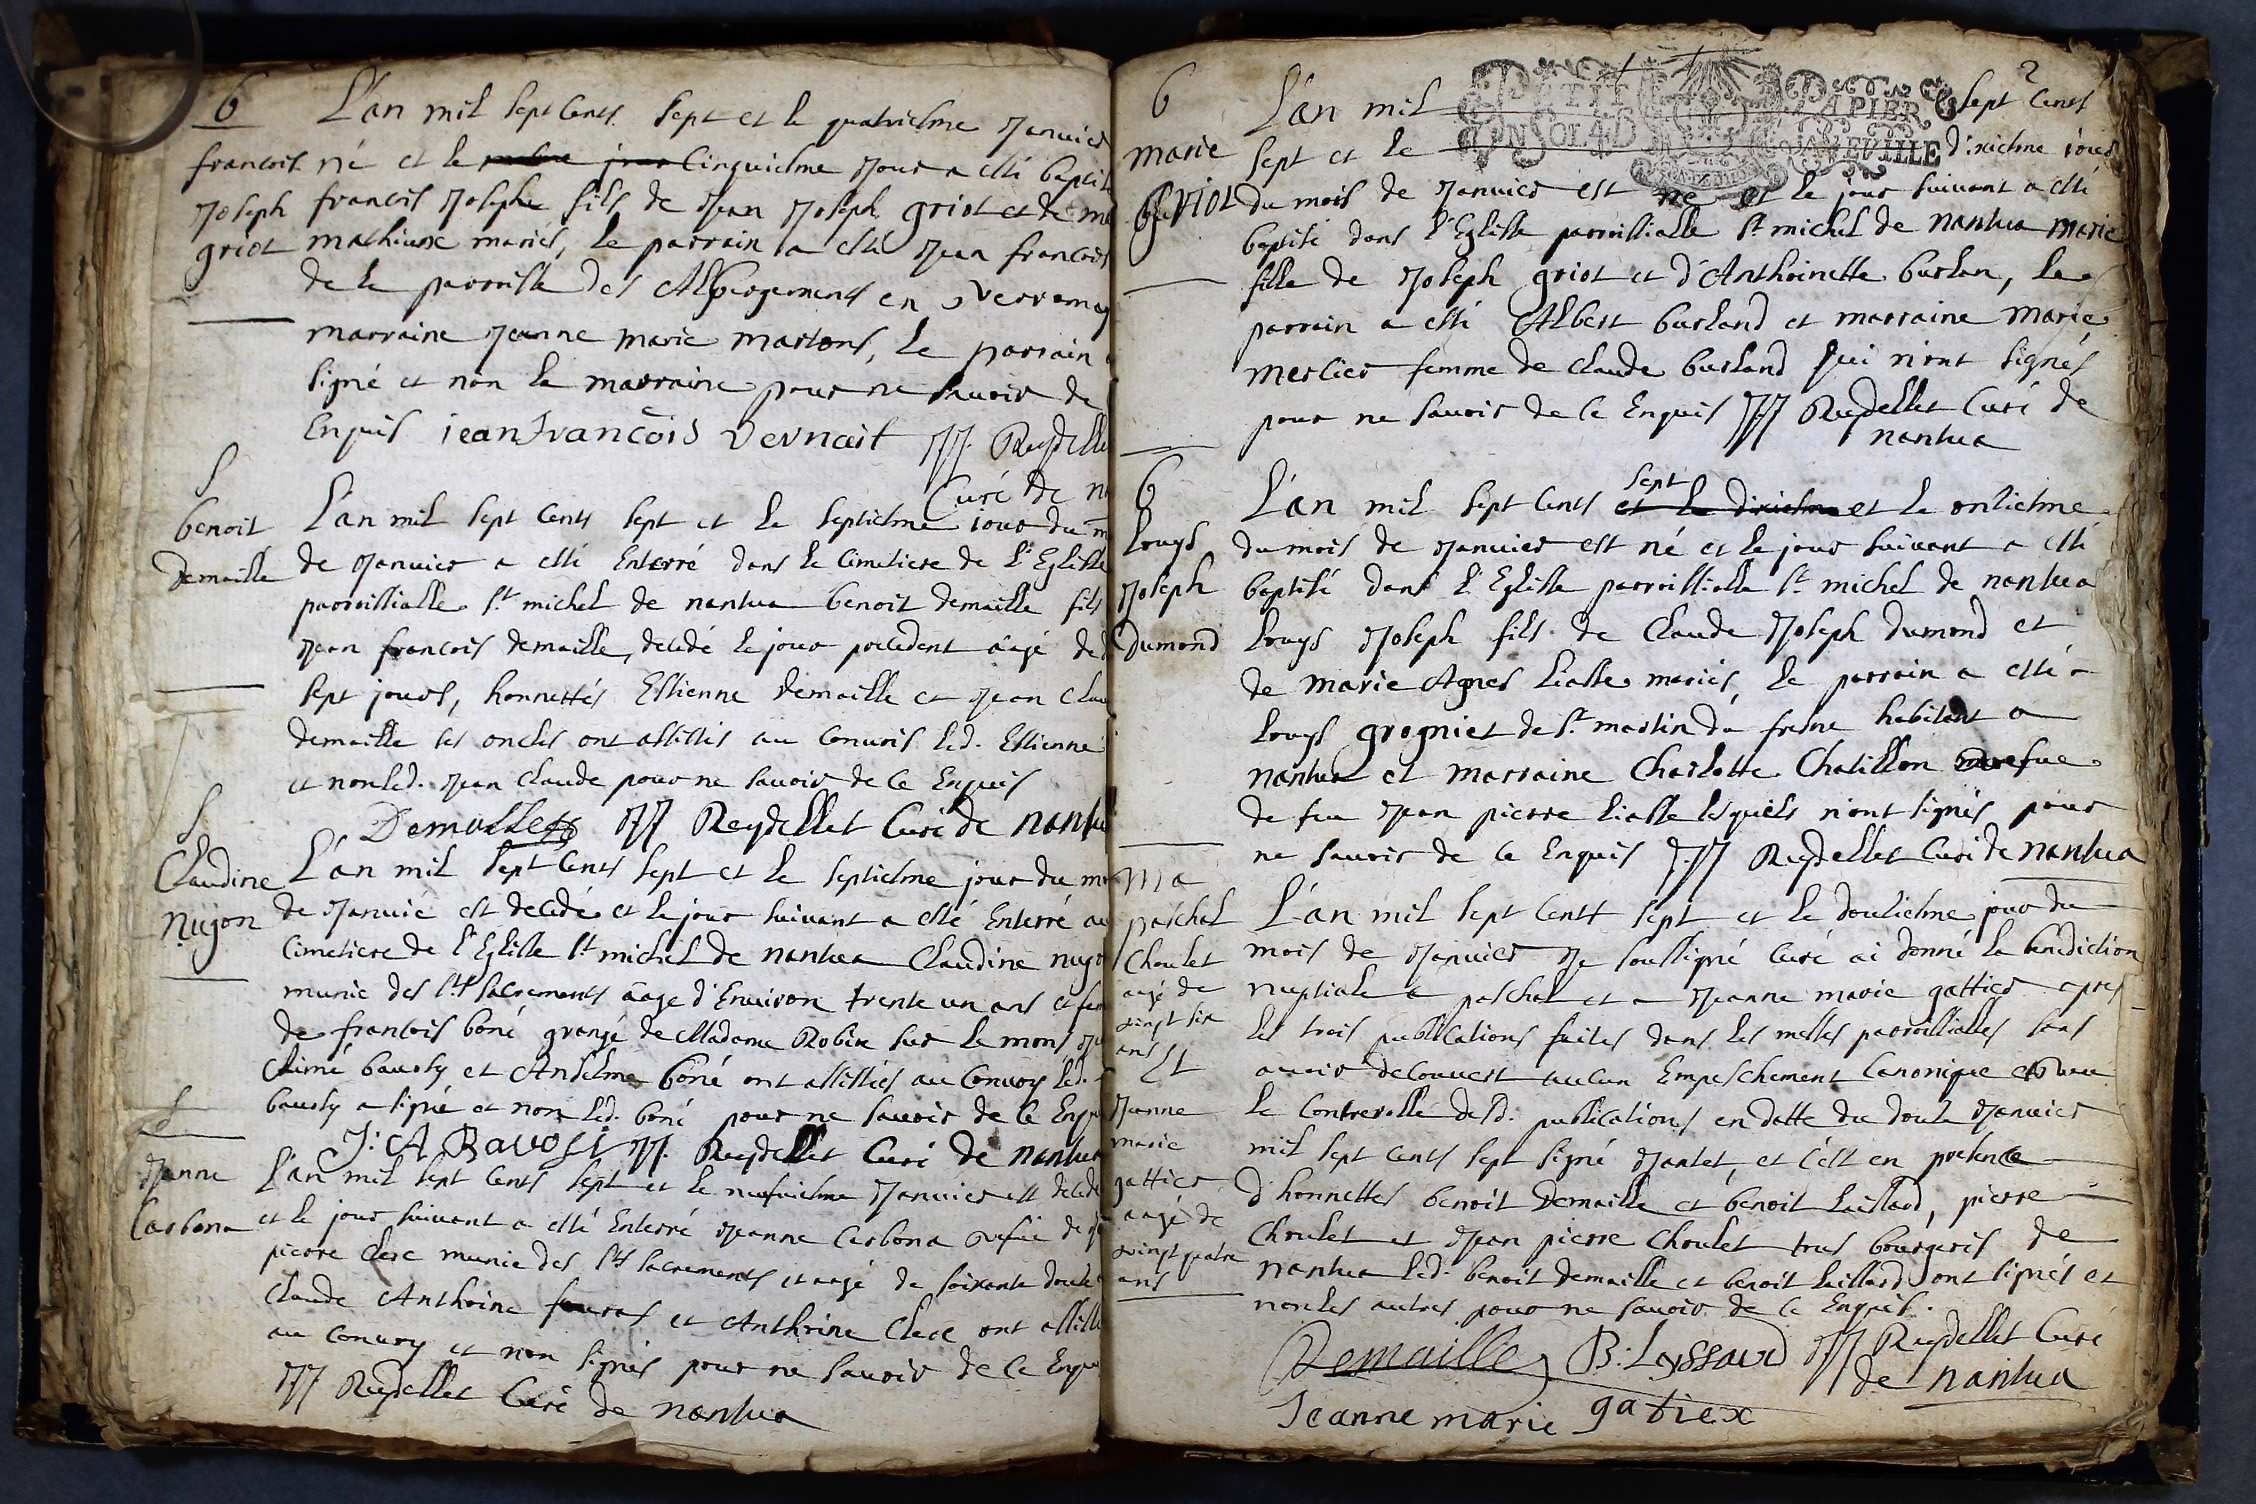 6
francois
Joseph
griot
L'an mil sept cents sept et le quatriesme Janvier
né et le mesme jour cinquiesme Jour a esté baptis
francois Joseph fils de Jean Joseph griot et de ma
mathieux mariés, le parrain a esté Jean francois
de la parroisse des Abbergements en Verromey
marraine Jeanne marie martons, le parrain a
signé et non la marraine pour ne savoir de
Enquis jean francois Vernait JJ. Reydelle
Curé de na
S
benoit
demaille
L'an mil sept cents sept et le septiesme jour du m
de Janvier a esté Enterré dans le Cimetiere de l'Eglisse
parroissialle St michel de nantua benoit demaille fils
Jean francois demaille, decedé le jour precedent aagé de d
sept jours, honnettés Estienne demaille et Jean Clau
demaille ses oncles ont assistés au Convois led. Estienne
et non led. Jean Claude pour ne savoir de ce Enquis
Demaille JJ Reydellet Curé de nantu
S
Claudine
nujon
L'an mil sept cents sept et le septiesme jour du mo
de Janvié est decedé et le jour suivant a esté Enterré au
Cimetiere de l'Eglisse St michel de nantua Claudine nujo
munie des Sts Sacrements aagé d'Environ trente un ans et fem
de francois boné grangé de Madame Robin sur le mont
Aimé bavosy et Anselme boné ont assistés au Convoy led.
bavosy a signé et non led. boné pour ne savoir de ce Enqu
J: A Bavosi JJ. Reydellet Curé de nantua
S
Jeanne
Carbona
L'an mil sept cents sept et le neufviesme Janvier est decedé
et le jour suivant a esté Enterré Jeanne Carbona vefue de
pierre Clerc munie des Sts Sacrements et aagé de soixante douze
Claude Anthoine fouras et Anthoine Clerc ont assisté
au Convoy et non signés pour ne savoir de ce Enqui
JJ Reydellet Curé de nantua
2
PETIT PAPIER
UN SOL 4 D LA FEUILLE
6
marie
griot
L'an mil sept cents
sept et le dixiesme jour
du mois de Janvier est né et le jour suivant a esté
baptisé dans l'Eglisse parroissialle St michel de nantua marie
fille de Joseph griot et d'Anthoinette burlan, le
parrain a esté Albert burland et marraine marie
mercier femme de Claude burland qui n'ont signés
pour ne savoir de ce Enquis JJ Reydellet Curé de
nantua
6
Louys
Joseph
Dumond
sept
L'an mil sept cents et le dixiesme et le onziesme
du mois de Janvier est né et le jour suivant a esté
baptisé dans l'Eglisse parroissialle St michel de nantua
Louys Joseph fils de Claude Joseph dumond et
de marie Agnes Liasse mariés, le parrain a esté
Louys grogniet de St martin du fresne habitant a
nantua et marraine Charlotte Chatillon vefue
de feu Jean pierre Liasse lesquels n'ont signés pour
ne savoir de ce Enquis JJ Reydellet Curé de nantua
Ma
paschal
Choulet
aagé de
vingt six
ans Et
Jeanne
marie
gattier
aagé de
vingt quatre
ans
L'an mil sept cents sept et le douziesme jour du
mois de Janvier Je soussigné curé ai donné la benediction
nuptiale a paschal et a Jeanne marie gattier apres
les trois publications faites dans les messes parroissialles sans
avoir decouvert aucun Empeschement Canonique et veu
le Contrerollé desd. publications en datte du douze Janvier
mil sept cents sept signé Jantet, et c'est en presence
d'honnettes benoit Demaille et benoit Laissard, pierre
Choulet et Jean pierre Choulet tous bourgeois de
nantua led. benoit demaille et benoit Laissard ont signés et
non les autres pour ne savoir de ce Enquis.
Demaille B: Leyssard JJ Reydellet Curé
de nantua
Jeanne marie gatiex